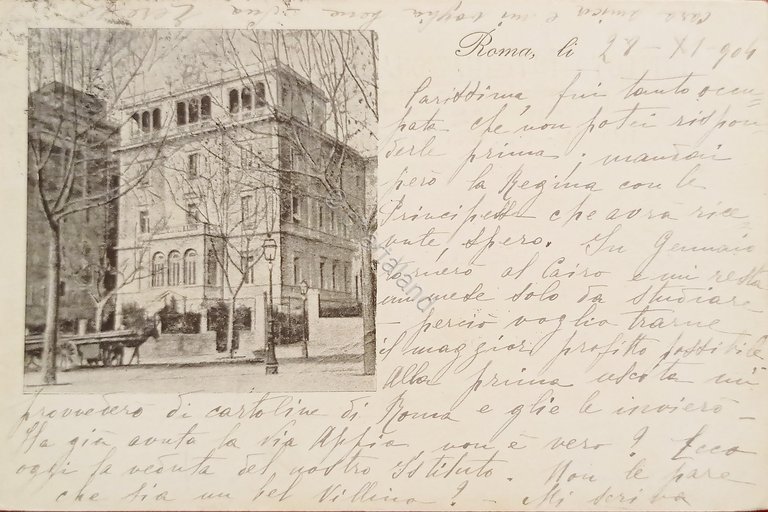 Roma, li 28 - XI - 904
Carissima fui tanto occu=
pata che non potei rispon=
derle prima; mandai
però la Regina con le
Principesse che avrà rice=
vute, spero. In Gennaio
tornerò al Cairo e mi resta
un mese solo da studiare
- perciò voglio trarne
il maggior profitto possibile
Alla prima uscita mi
provvederò di cartoline di Roma e glie le invierò -
Ha già avuta la Via Appia non è vero? Ecco
oggi la veduta del nostro Istituto. Non le pare
che sia un bel Villino? - Mi scriva
cara amica e mi voglia bene Sua